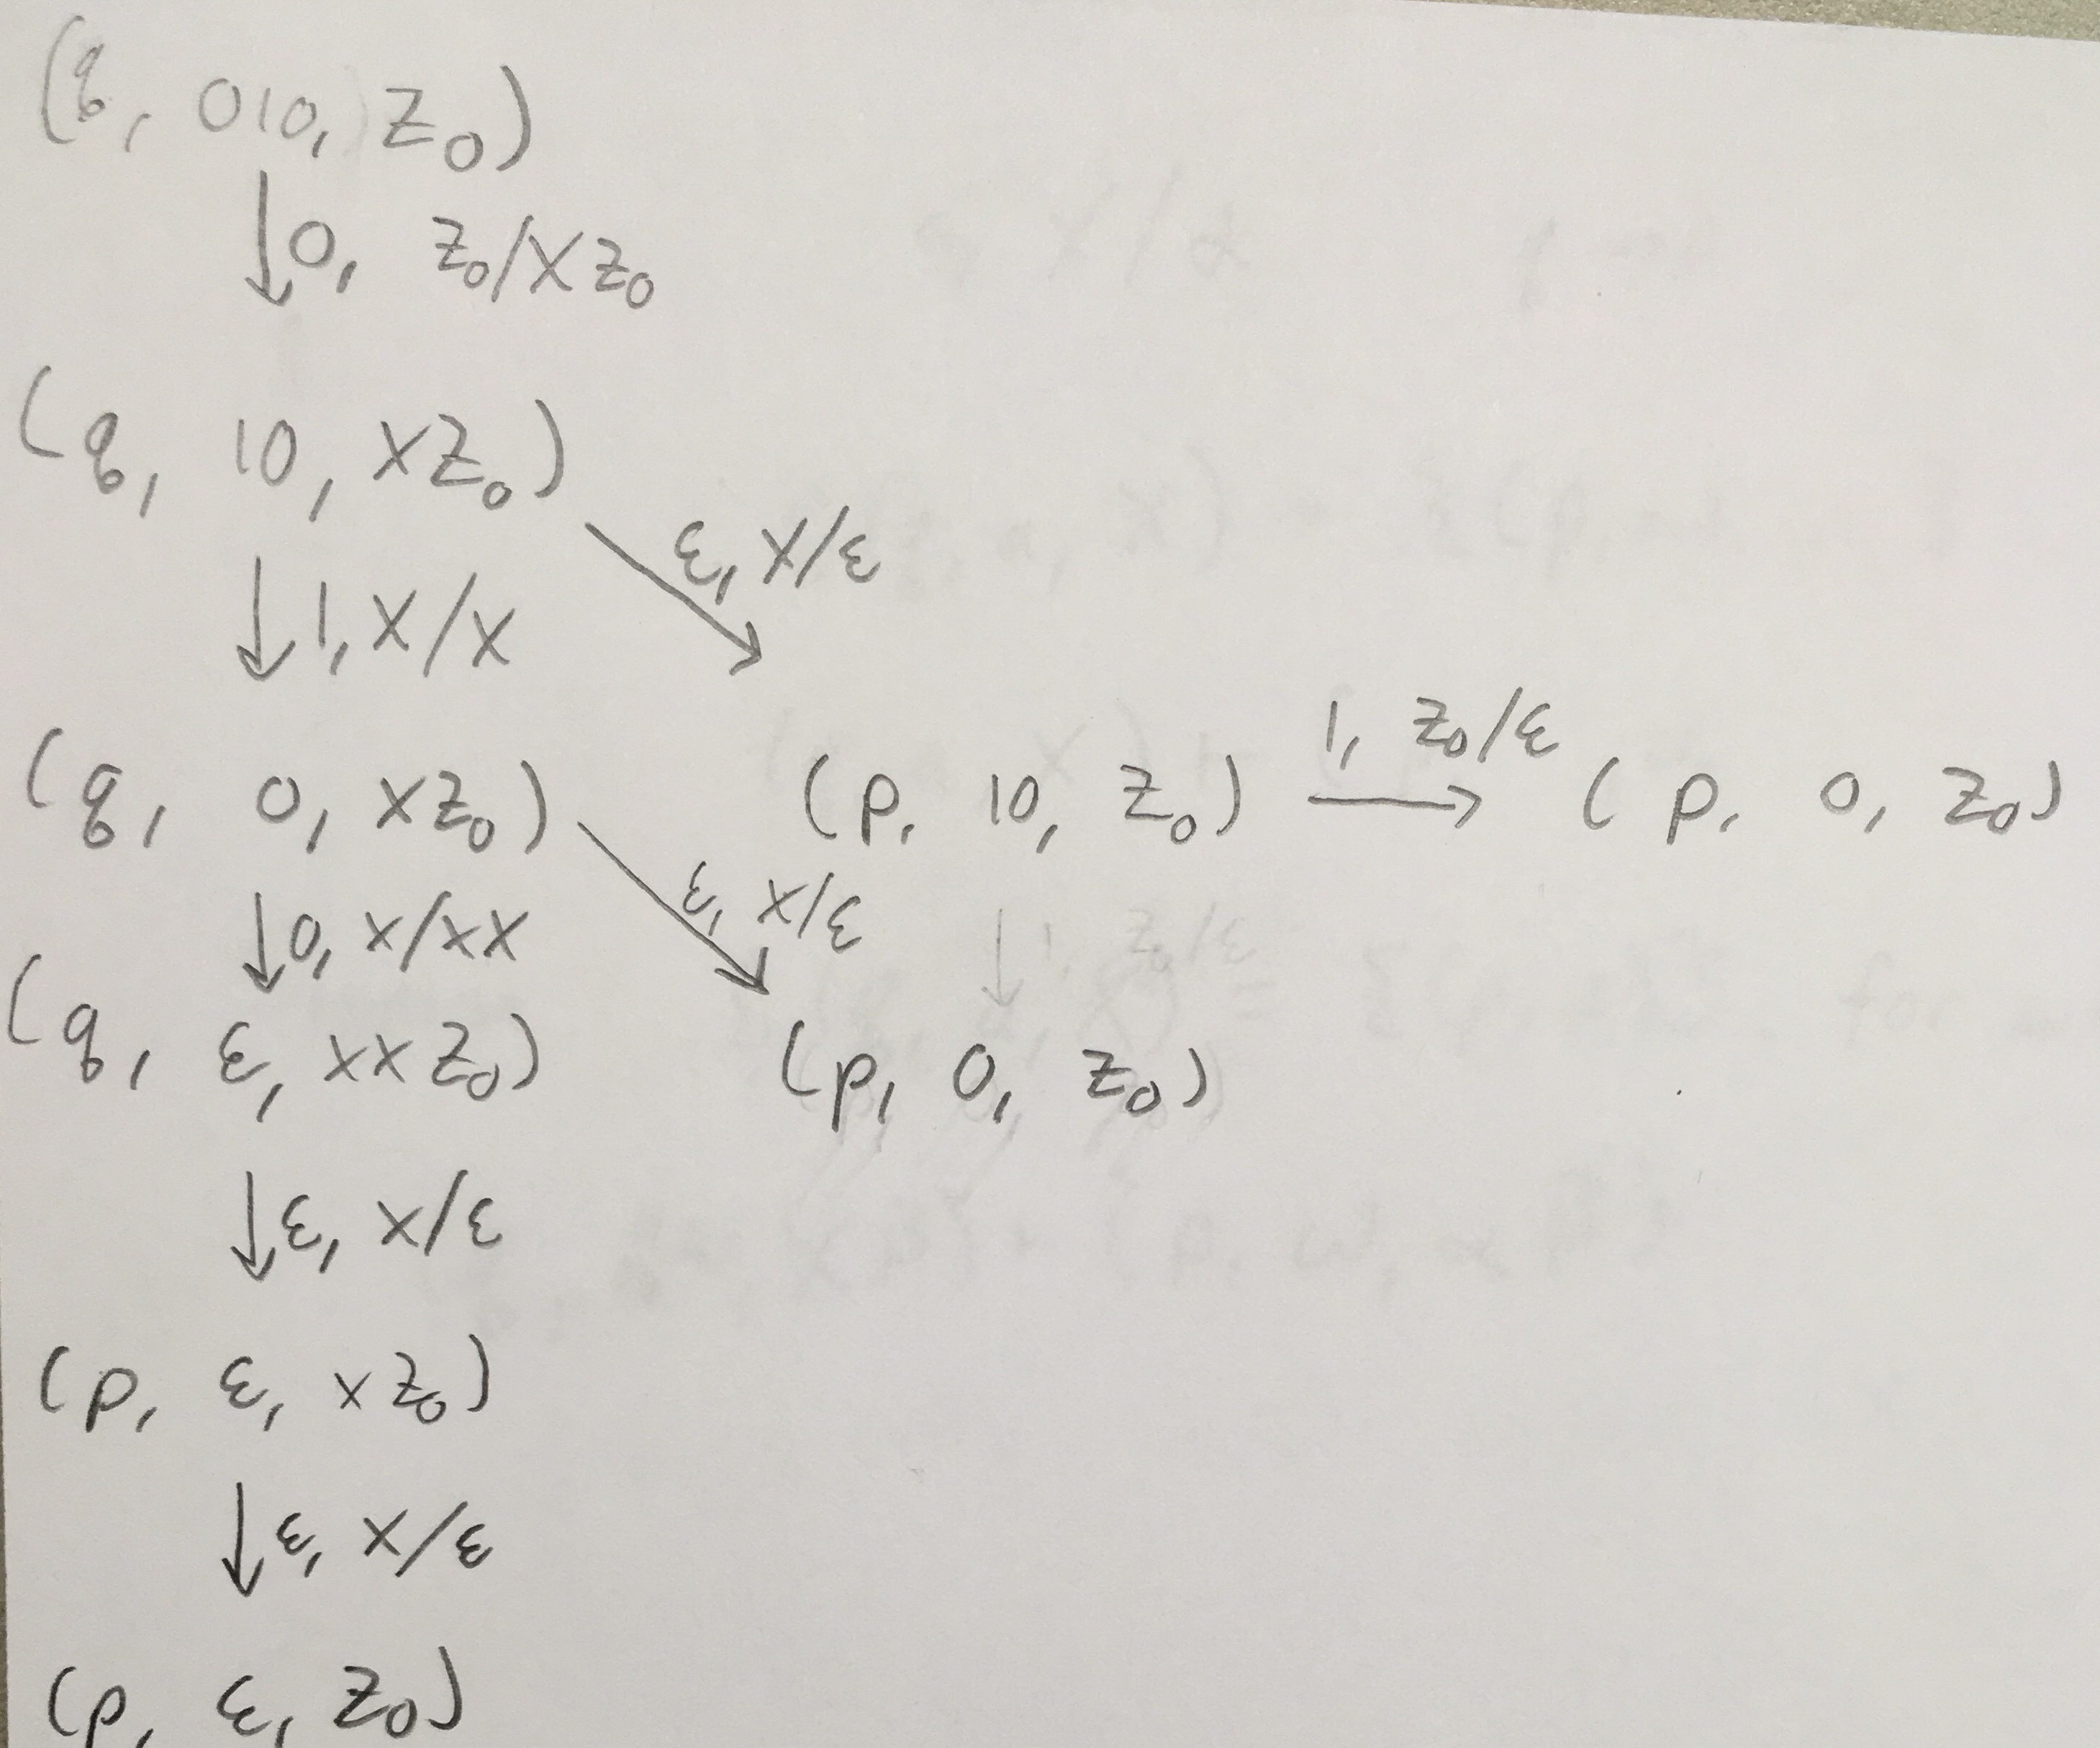 (q, 010, Z₀)
↓ 0, Z₀/XZ₀
(q, 10, XZ₀)
ε, X/ε
↓ 1, X/X
(q, 0, XZ₀)
(p, 10, Z₀)
1, Z₀/ε
→
(p, 0, Z₀)
ε, X/ε
↓ 0, X/XX
(q, ε, XXZ₀)
(p, 0, Z₀)
↓ ε, X/ε
(p, ε, XZ₀)
↓ ε, X/ε
(p, ε, Z₀)